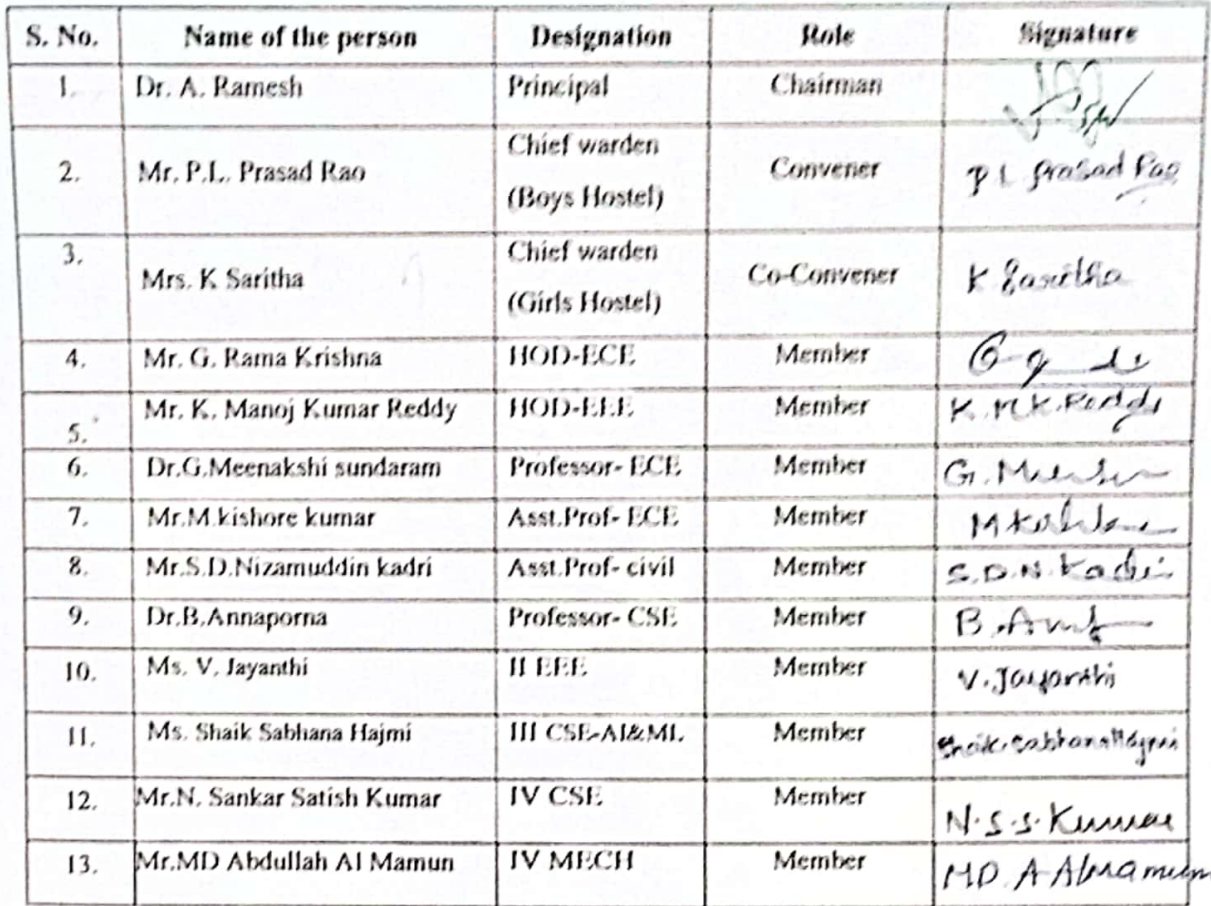 S. No. Name of the person Designation Role Signature
1. Dr. A. Ramesh Principal Chairman
2. Mr. P.L. Prasad Rao Chief warden (Boys Hostel) Convener P L Prasad Rao
3. Mrs. K Saritha Chief warden (Girls Hostel) Co-Convener K Saritha
4. Mr. G. Rama Krishna HOD-ECE Member
5. Mr. K. Manoj Kumar Reddy HOD-EEE Member K.M.K.Reddy
6. Dr.G.Meenakshi sundaram Professor- ECE Member
7. Mr.M.kishore kumar Asst.Prof- ECE Member
8. Mr.S.D.Nizamuddin kadri Asst.Prof- civil Member S.D.N.Kadri
9. Dr.B.Annaporna Professor- CSE Member
10. Ms. V. Jayanthi II EEE Member V.Jayanthi
11. Ms. Shaik Sabhana Hajmi III CSE-AI&ML Member Shaik.Sabhana Hajmi
12. Mr.N. Sankar Satish Kumar IV CSE Member N.S.S.Kumar
13. Mr.MD Abdullah Al Mamun IV MECH Member MD.A Almamun